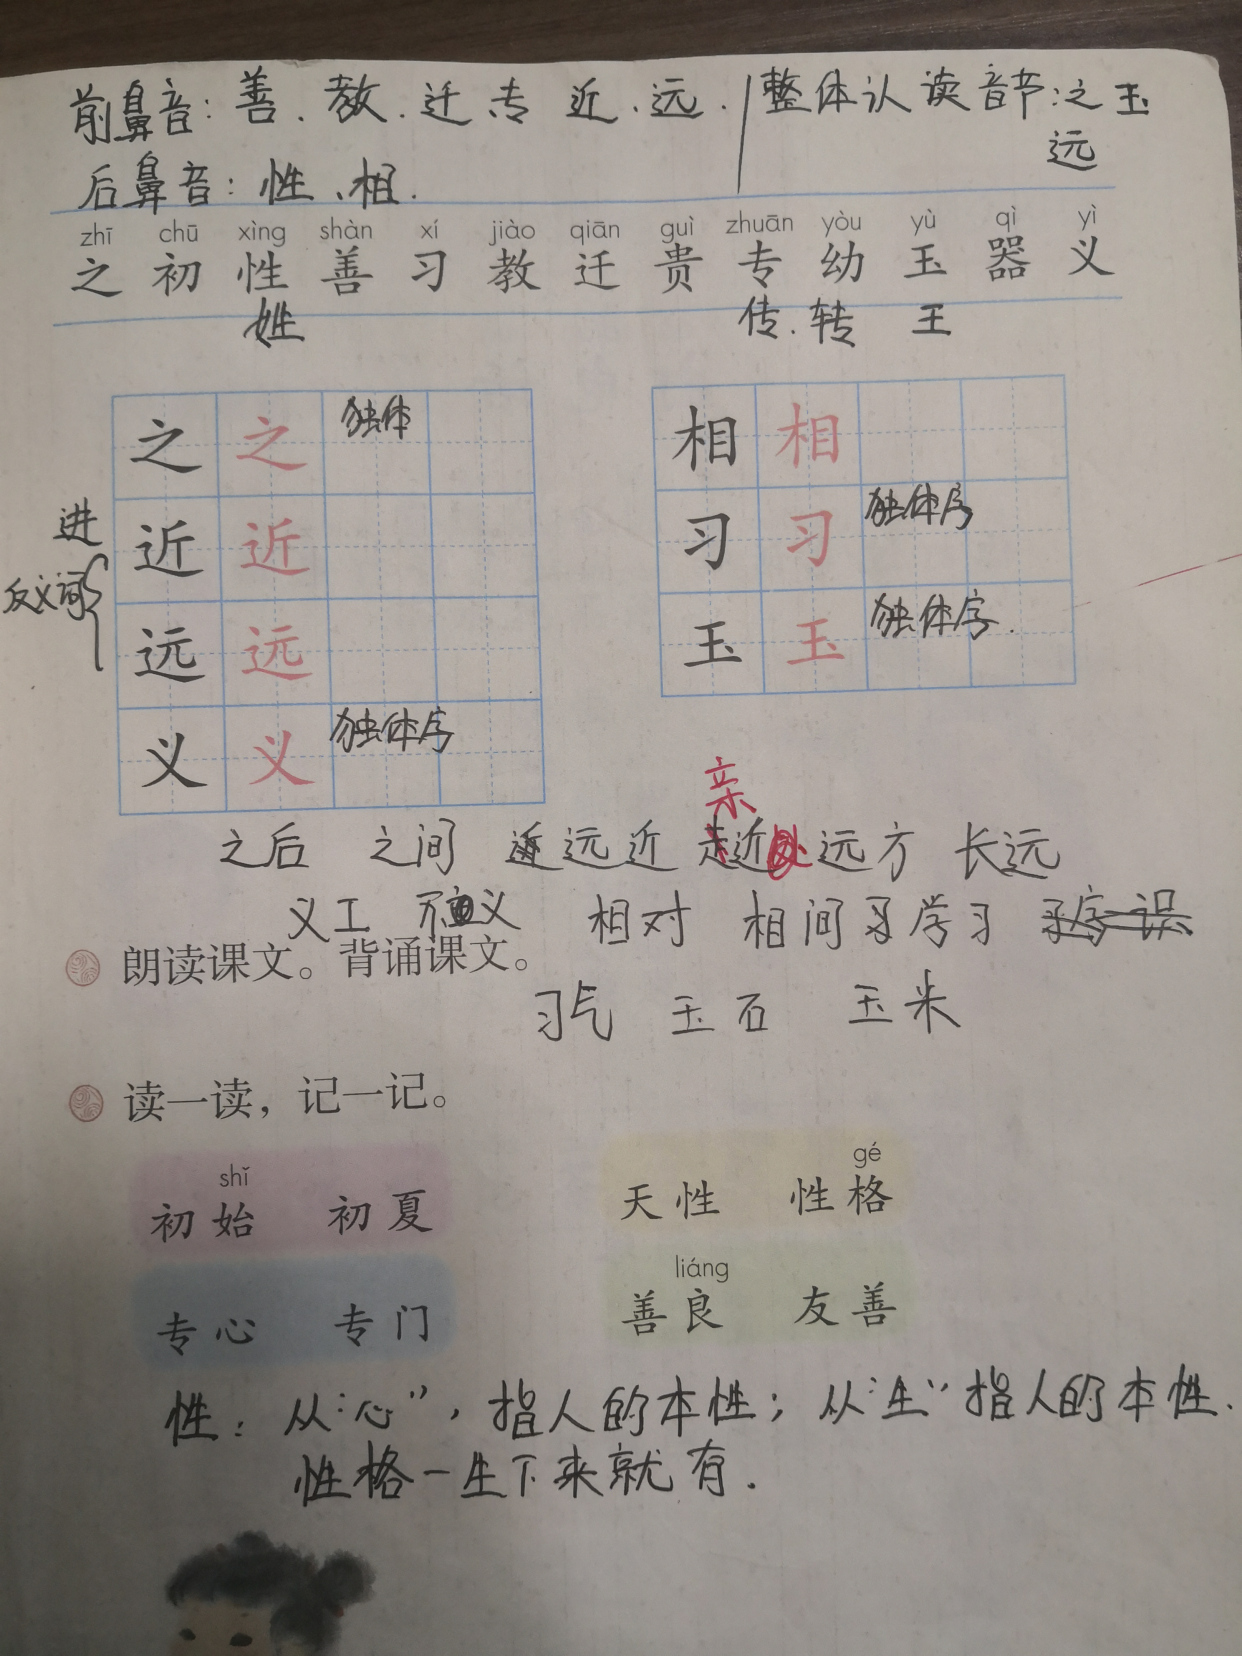 前鼻音：善、教、迁、专 近、远.
整体认读音节：之 玉
远
后鼻音：性、相.
zhī chū xìng shàn xí jiào qiān guì zhuān yòu yù qì yì
之 初 性 善 习 教 迁 贵 专 幼 玉 器 义
姓 传.转 王
之 之 独体
相 相
进
近 近
习 习 独体字
反义词
远 远
玉 玉 独体字.
义 义 独体字
亲
之后 之间 远近 近 远方 长远
义工 义 相对 相间 学习
朗读课文。背诵课文。
习气 玉石 玉米
读一读，记一记。
shǐ gé
初始 初夏 天性 性格
liáng
专心 专门 善良 友善
性：从“心”，指人的本性；从“生”指人的本性.
性格一生下来就有.